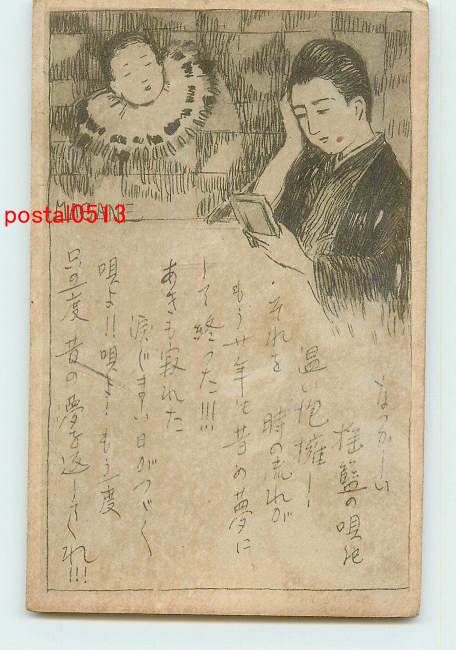 postal0513
なつかしい
揺籃の唄や
温い抱擁!
それを
時の流れが
もう廿年も昔の夢に
して終った!!!
あまりも寂れた
涙じます日がつづく
唄よ!!唄よ!もう一度
只の一度 昔の夢を返してくれ!!!